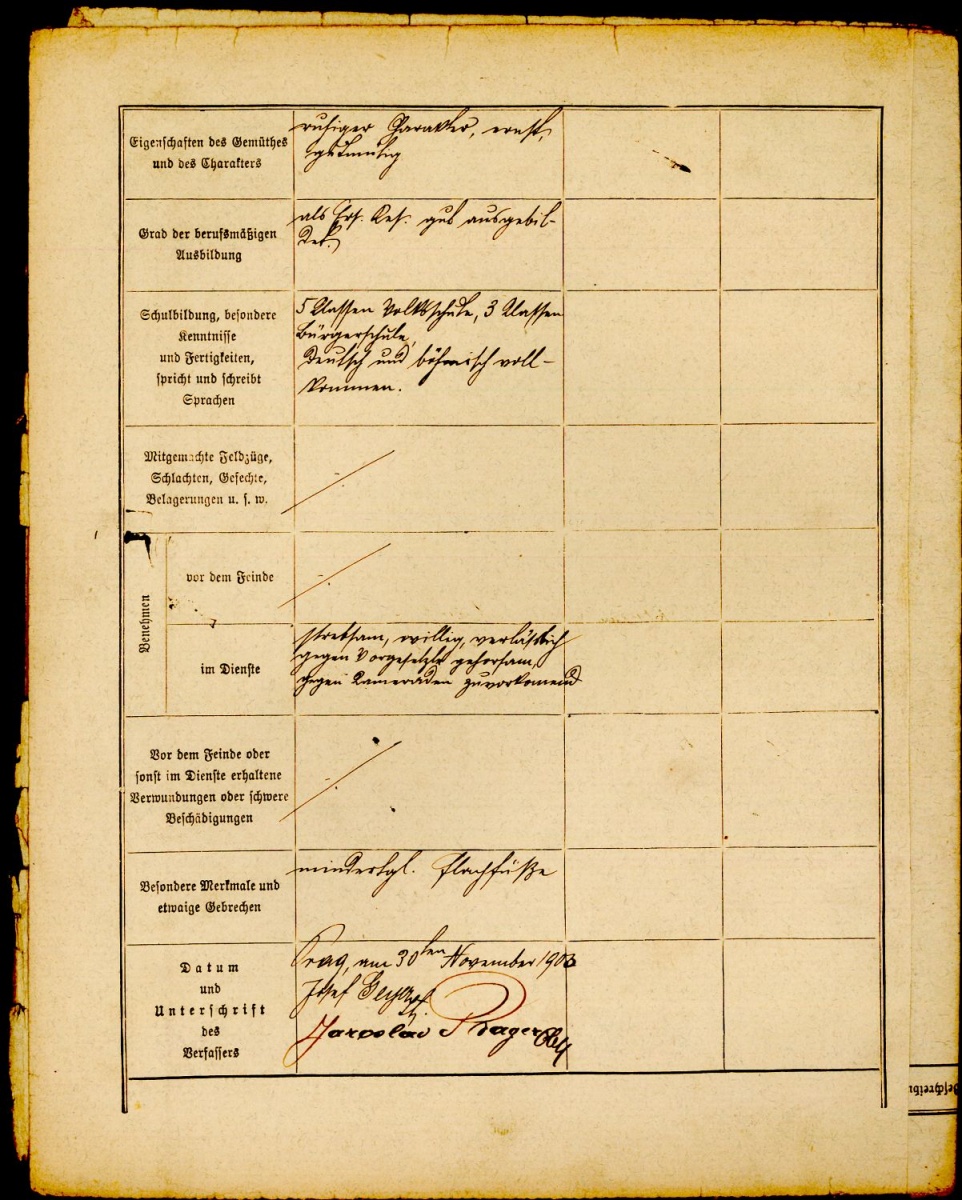 Eigenschaften des Gemüthes
und des Charakters
ruhiger Charakter, ernst,
gutmütig
Grad der berufsmäßigen
Ausbildung
als Ers. Res. gut ausgebil-
det.
Schulbildung, besondere
Kenntnisse
und Fertigkeiten,
spricht und schreibt
Sprachen
5 Klassen Volksschule, 3 Klassen
Bürgerschule,
deutsch und böhmisch voll-
kommen.
Mitgemachte Feldzüge,
Schlachten, Gefechte,
Belagerungen u. s. w.
Benehmen
vor dem Feinde
im Dienste
strebsam, willig, verlässlich
gegen Vorgesetzte gehorsam,
gegen Kameraden zuvorkomend
Vor dem Feinde oder
sonst im Dienste erhaltene
Verwundungen oder schwere
Beschädigungen
Besondere Merkmale und
etwaige Gebrechen
Flachfüße
Datum
und
Unterschrift
des
Verfassers
Prag, am 30ten November
Josef
Jaroslav Prager